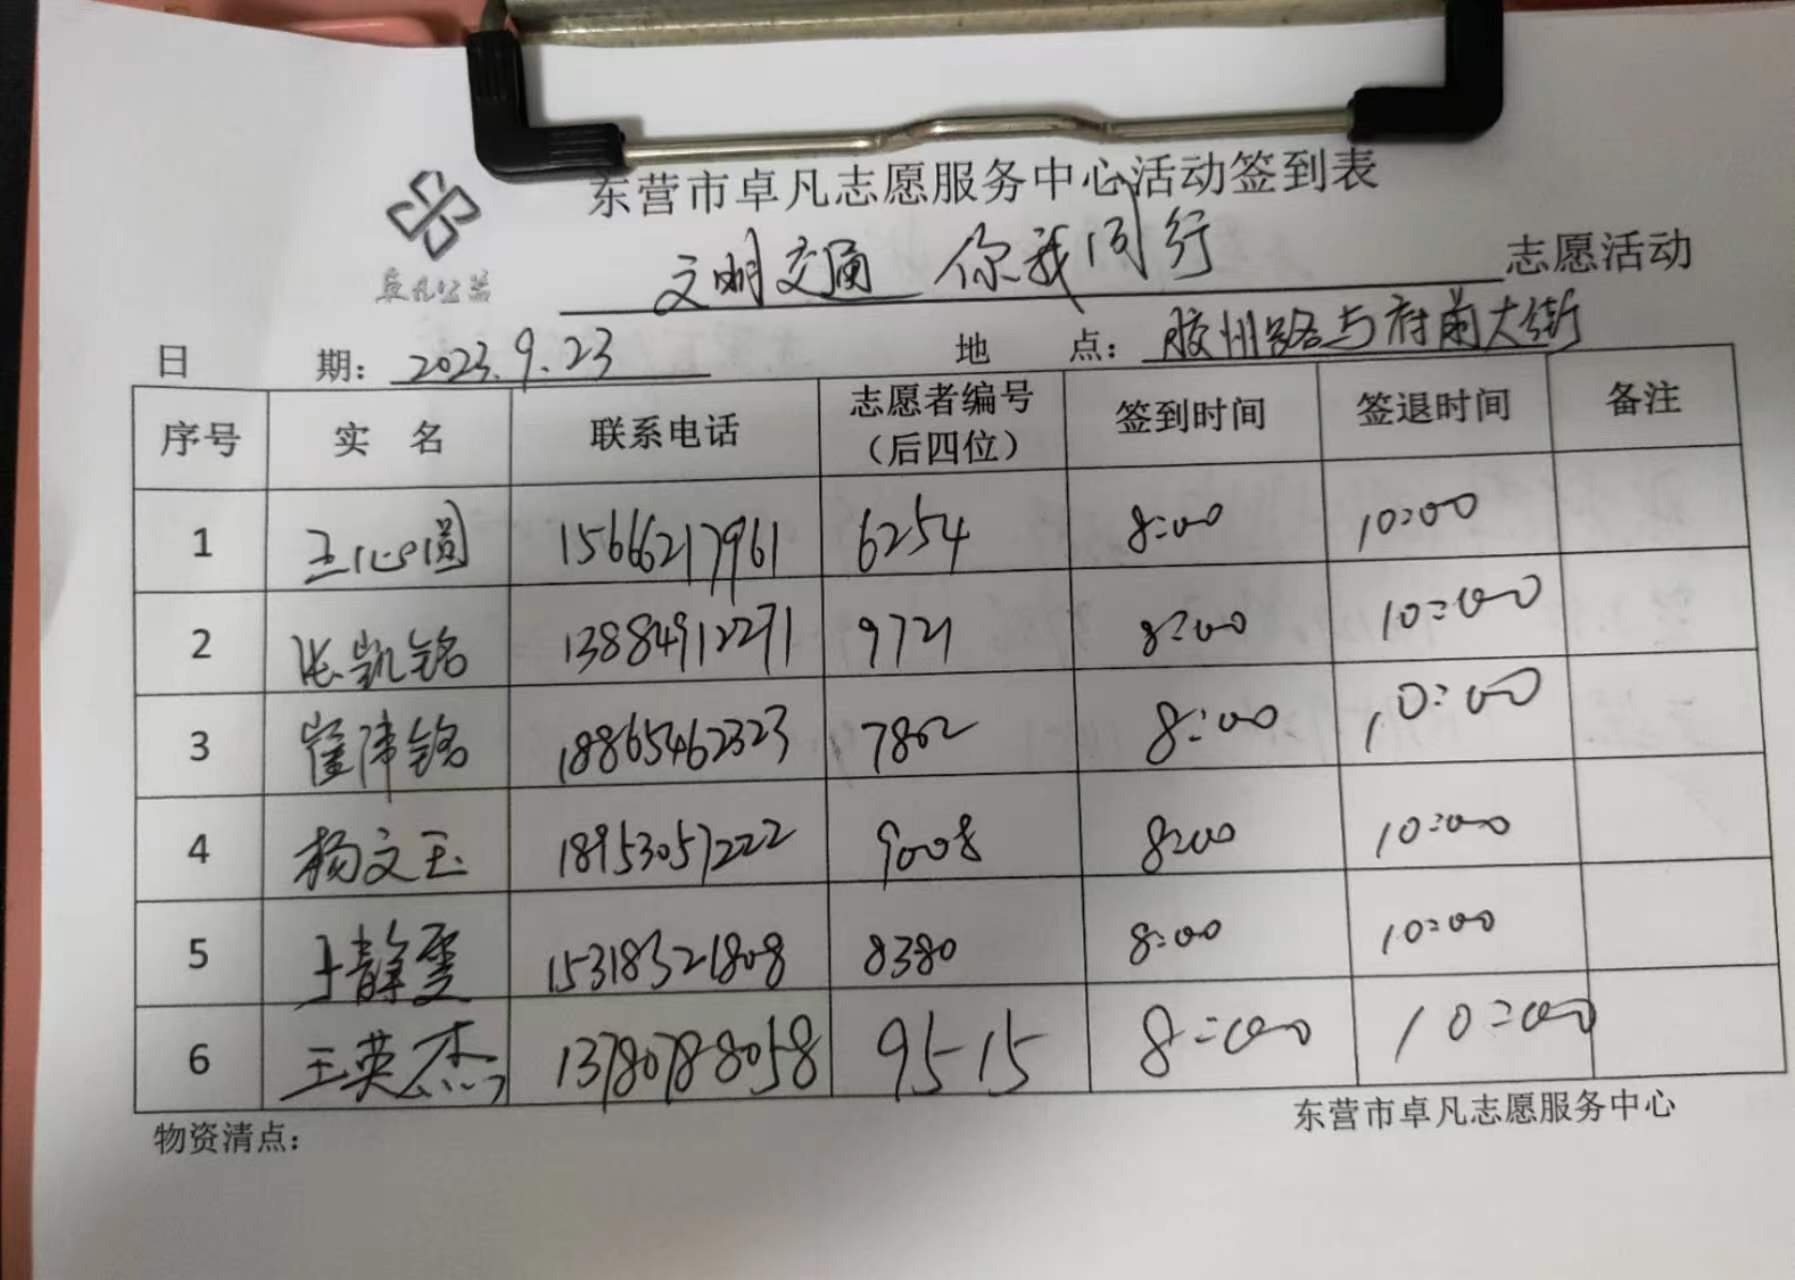 东营市卓凡志愿服务中心活动签到表
卓凡公益
文明交通 你我同行 志愿活动
日 期: 2023.9.23 地 点: 胶州路与府前大街
序号 实 名 联系电话 志愿者编号（后四位） 签到时间 签退时间 备注
1 王心圆 15666217961 6254 8:00 10:00
2 张凯铭 13884912271 9721 8:00 10:00
3 崔沛铭 18865462323 7862 8:00 10:00
4 杨文玉 18953057222 9008 8:00 10:00
5 于静雯 15318321808 8380 8:00 10:00
6 王英杰 13780788058 9515 8:00 10:00
物资清点: 东营市卓凡志愿服务中心